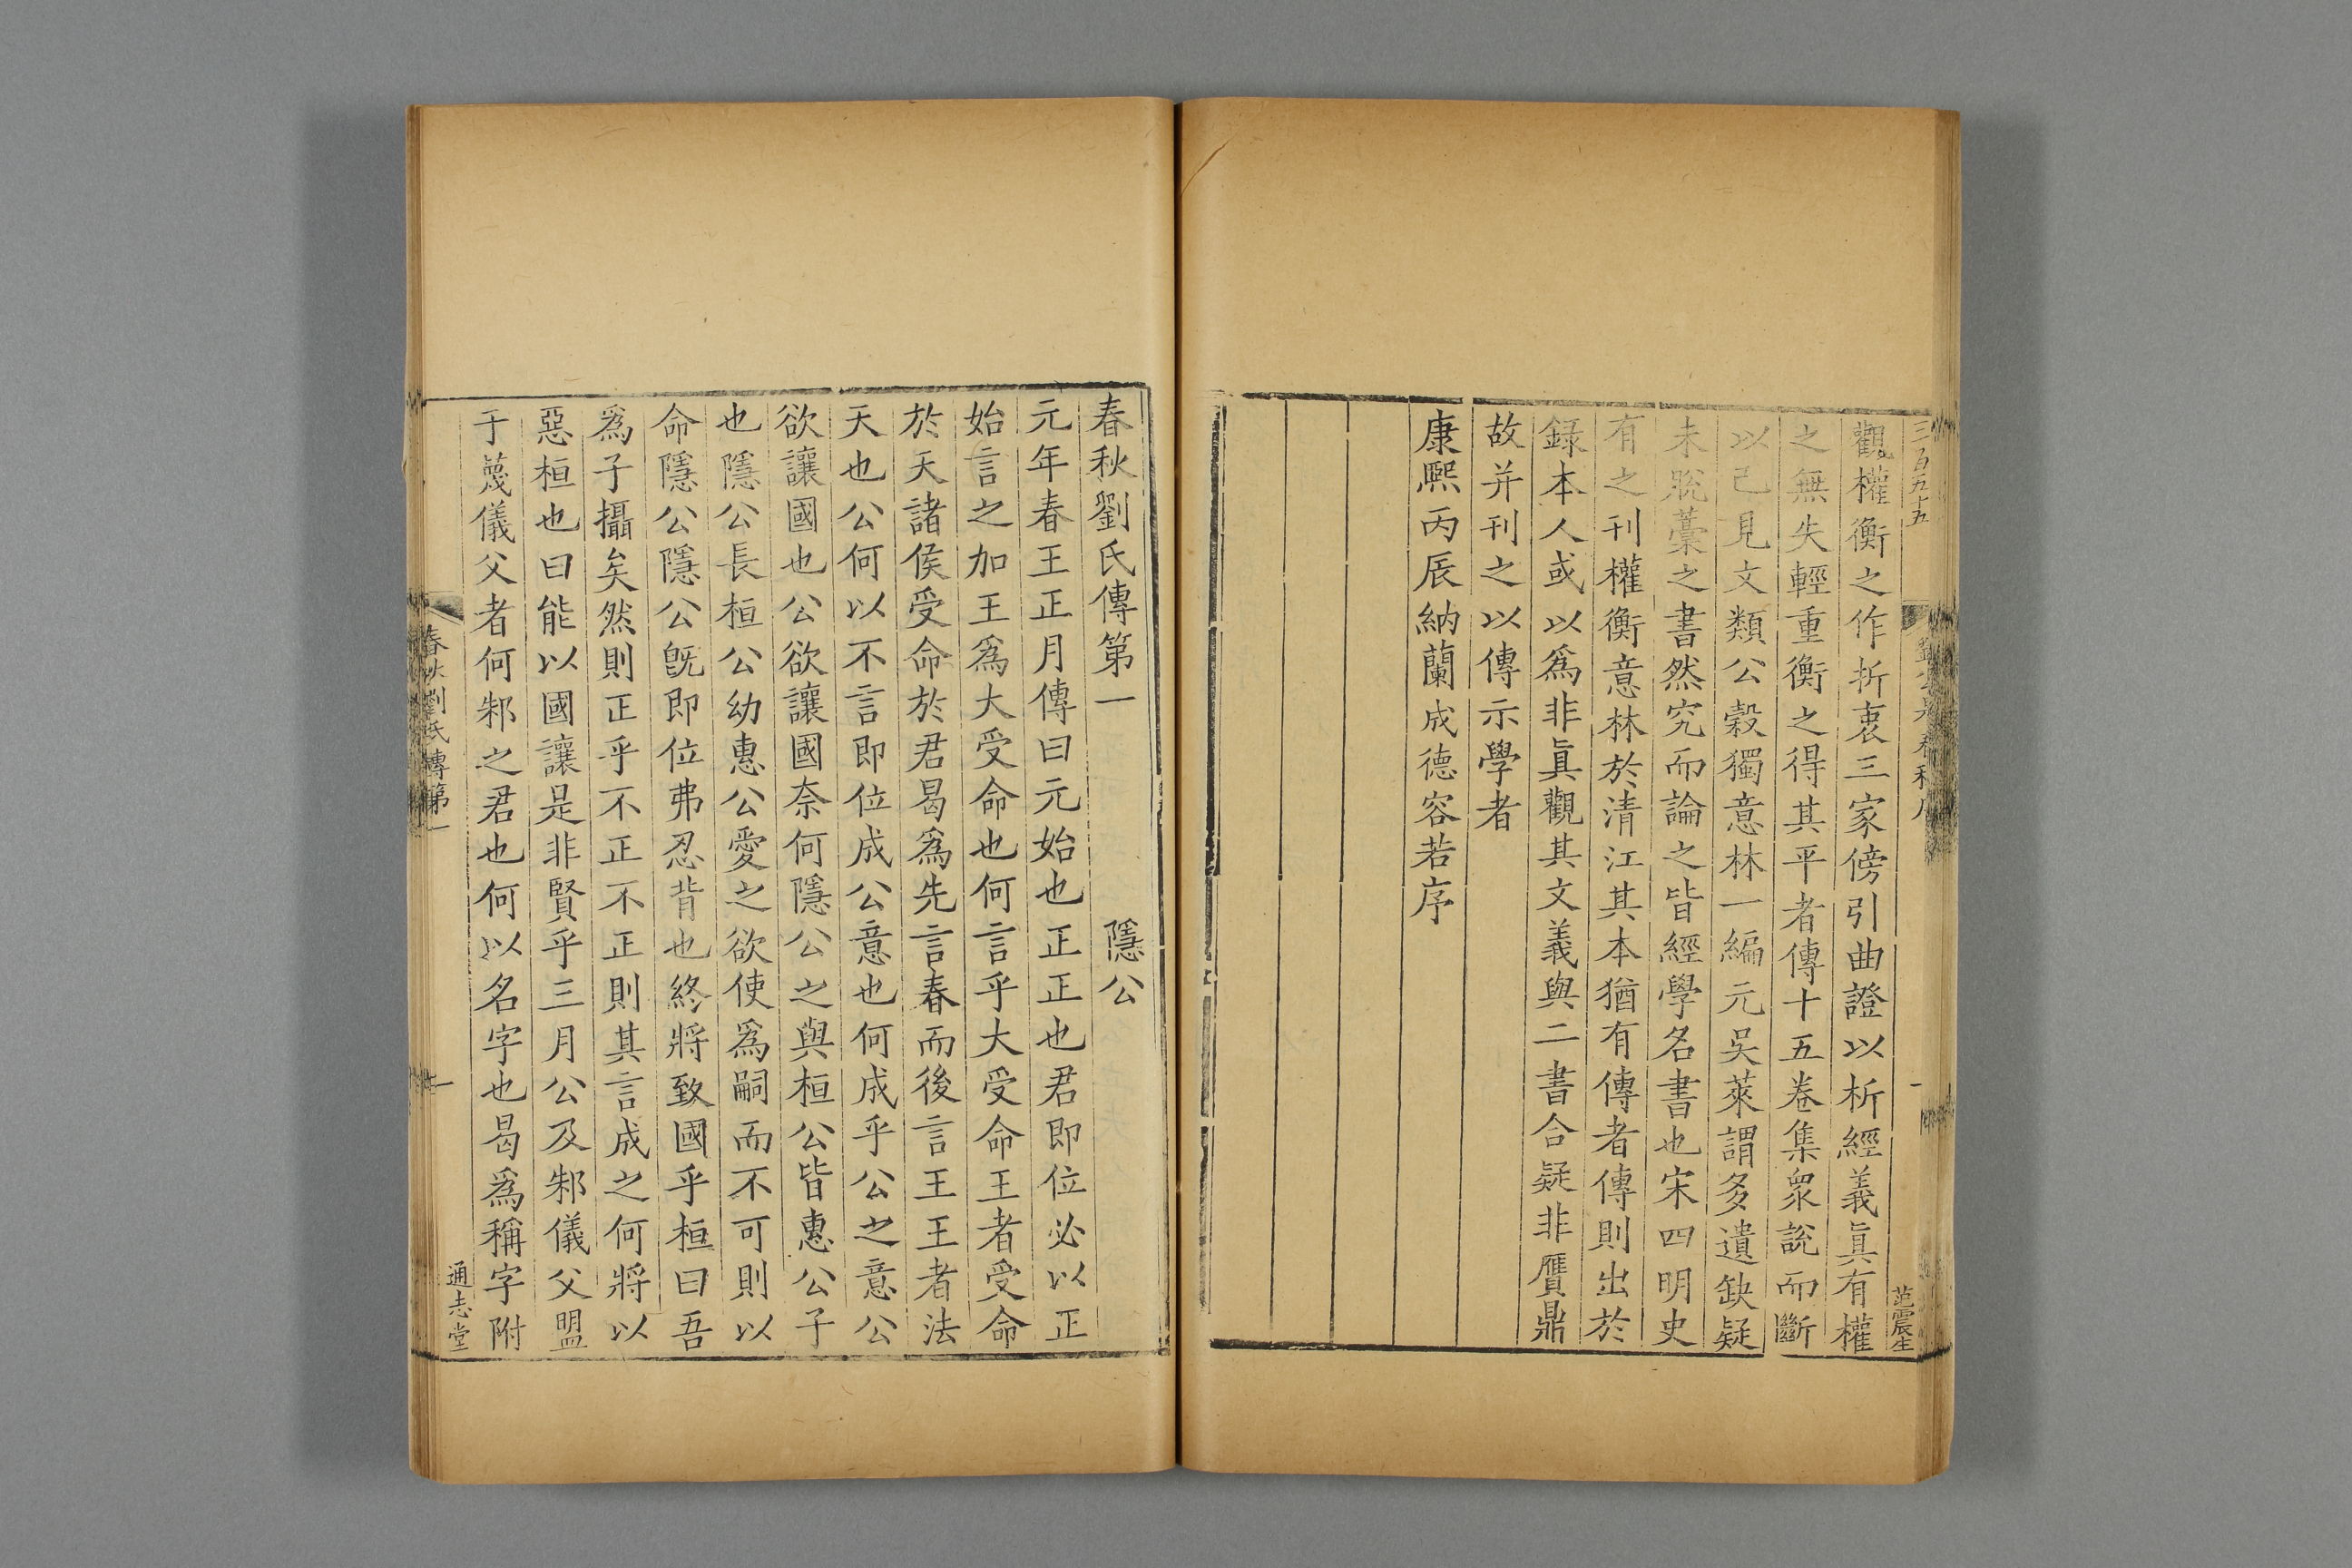 三百五十五
觀權衡之作折衷三家傍引曲證以析經義眞有權
之無失輕重衡之得其平者傳十五卷集衆説而斷
以己見文類公穀獨意林一編元吳萊謂多遺缺疑
未脫藳之書然究而論之皆經學名書也宋四明史
有之刊權衡意林於清江其本猶有傳者傳則出於
錄本人或以爲非眞觀其文義與二書合疑非贋鼎
故并刊之以傳示學者
康熙丙辰納蘭成德容若序
一
范震生
春秋劉氏傳第一 隱公
元年春王正月傳曰元始也正正也君即位必以正
始言之加王爲大受命也何言乎大受命王者受命
於天諸侯受命於君曷爲先言春而後言王王者法
天也公何以不言即位成公意也何成乎公之意公
欲讓國也公欲讓國奈何隱公之與桓公皆惠公子
也隱公長桓公幼惠公愛之欲使爲嗣而不可則以
命隱公隱公旣即位弗忍背也終將致國乎桓曰吾
爲子攝矣然則正乎不正不正則其言成之何將以
惡桓也曰能以國讓是非賢乎三月公及邾儀父盟
于蔑儀父者何邾之君也何以名字也曷爲稱字附
春秋劉氏傳第一
一
通志堂